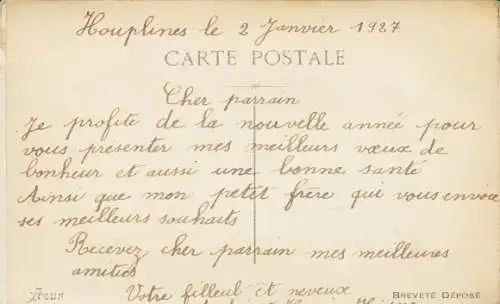 Houplines le 2 Janvier 1927
CARTE POSTALE
Cher parrain
Je profite de la nouvelle année pour
vous présenter mes meilleurs vœux de
bonheur et aussi une bonne santé
Ainsi que mon petit frère qui vous envoie
ses meilleurs souhaits
Recevez cher parrain mes meilleures
amitiés
Votre filleul et neveux
BREVETÉ DÉPOSÉ